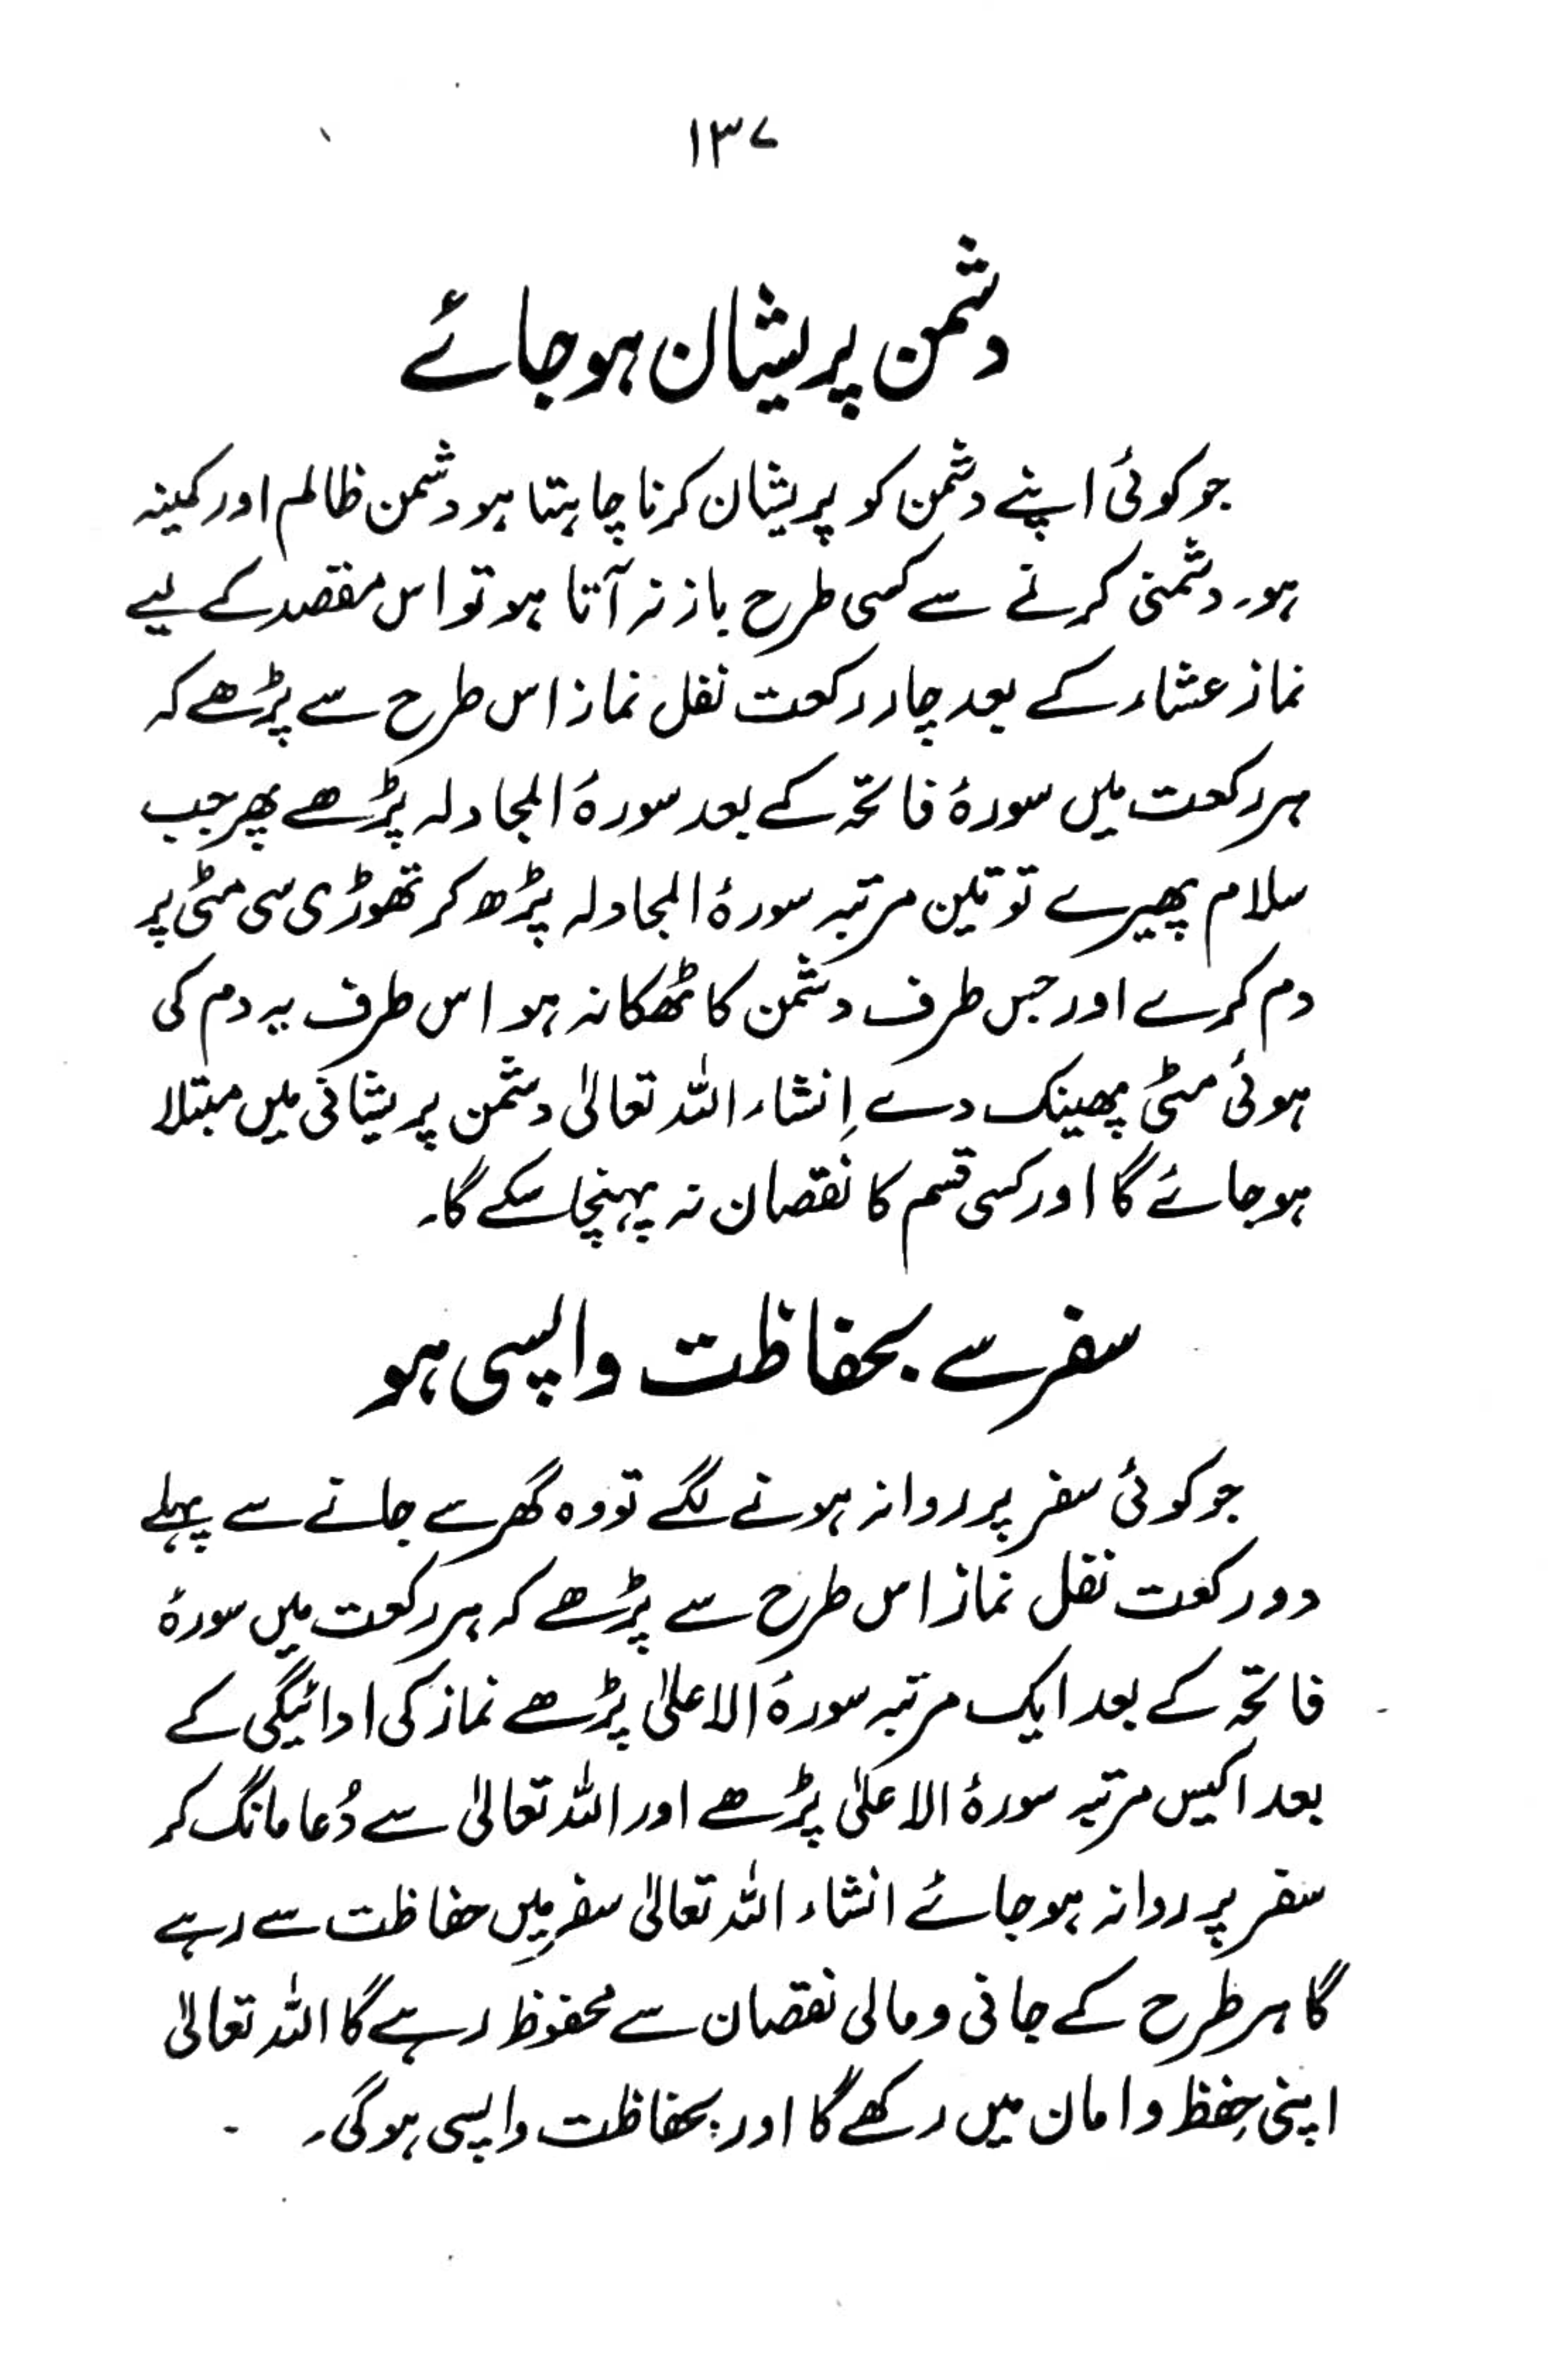 ۱۳۷
دشمن پریشان ہو جائے
جو کوئی اپنے دشمن کو پریشان کرنا چاہتا ہو دشمن ظالم اور کمینہ
ہو۔ دشمنی کرنے سے کسی طرح باز نہ آتا ہو تو اس مقصد کے لیے
نماز عشاء کے بعد چار رکعت نفل نماز اس طرح سے پڑھے کہ
ہر رکعت میں سورۂ فاتحہ کے بعد سورۂ المجادلہ پڑھے پھر جب
سلام پھیرے تو تین مرتبہ سورۂ المجادلہ پڑھ کر تھوڑی سی مٹی پر
دم کرے اور جس طرف دشمن کا ٹھکانہ ہو اس طرف یہ دم کی
ہوئی مٹی پھینک دے اِنشاء اللہ تعالیٰ دشمن پریشانی میں مبتلا
ہو جائے گا اور کسی قسم کا نقصان نہ پہنچا سکے گا۔
سفر سے بحفاظت واپسی ہو
جو کوئی سفر پر روانہ ہونے لگے تو وہ گھر سے جانے سے پہلے
دو رکعت نفل نماز اس طرح سے پڑھے کہ ہر رکعت میں سورۂ
فاتحہ کے بعد ایک مرتبہ سورۂ الاعلیٰ پڑھے نماز کی ادائیگی کے
بعد اکیس مرتبہ سورۂ الاعلیٰ پڑھے اور اللہ تعالیٰ سے دُعا مانگ کر
سفر پر روانہ ہو جائے انشاء اللہ تعالیٰ سفر میں حفاظت سے رہے
گا ہر طرح کے جانی و مالی نقصان سے محفوظ رہے گا اللہ تعالیٰ
اپنی حِفظ و امان میں رکھے گا اور بحفاظت واپسی ہو گی۔